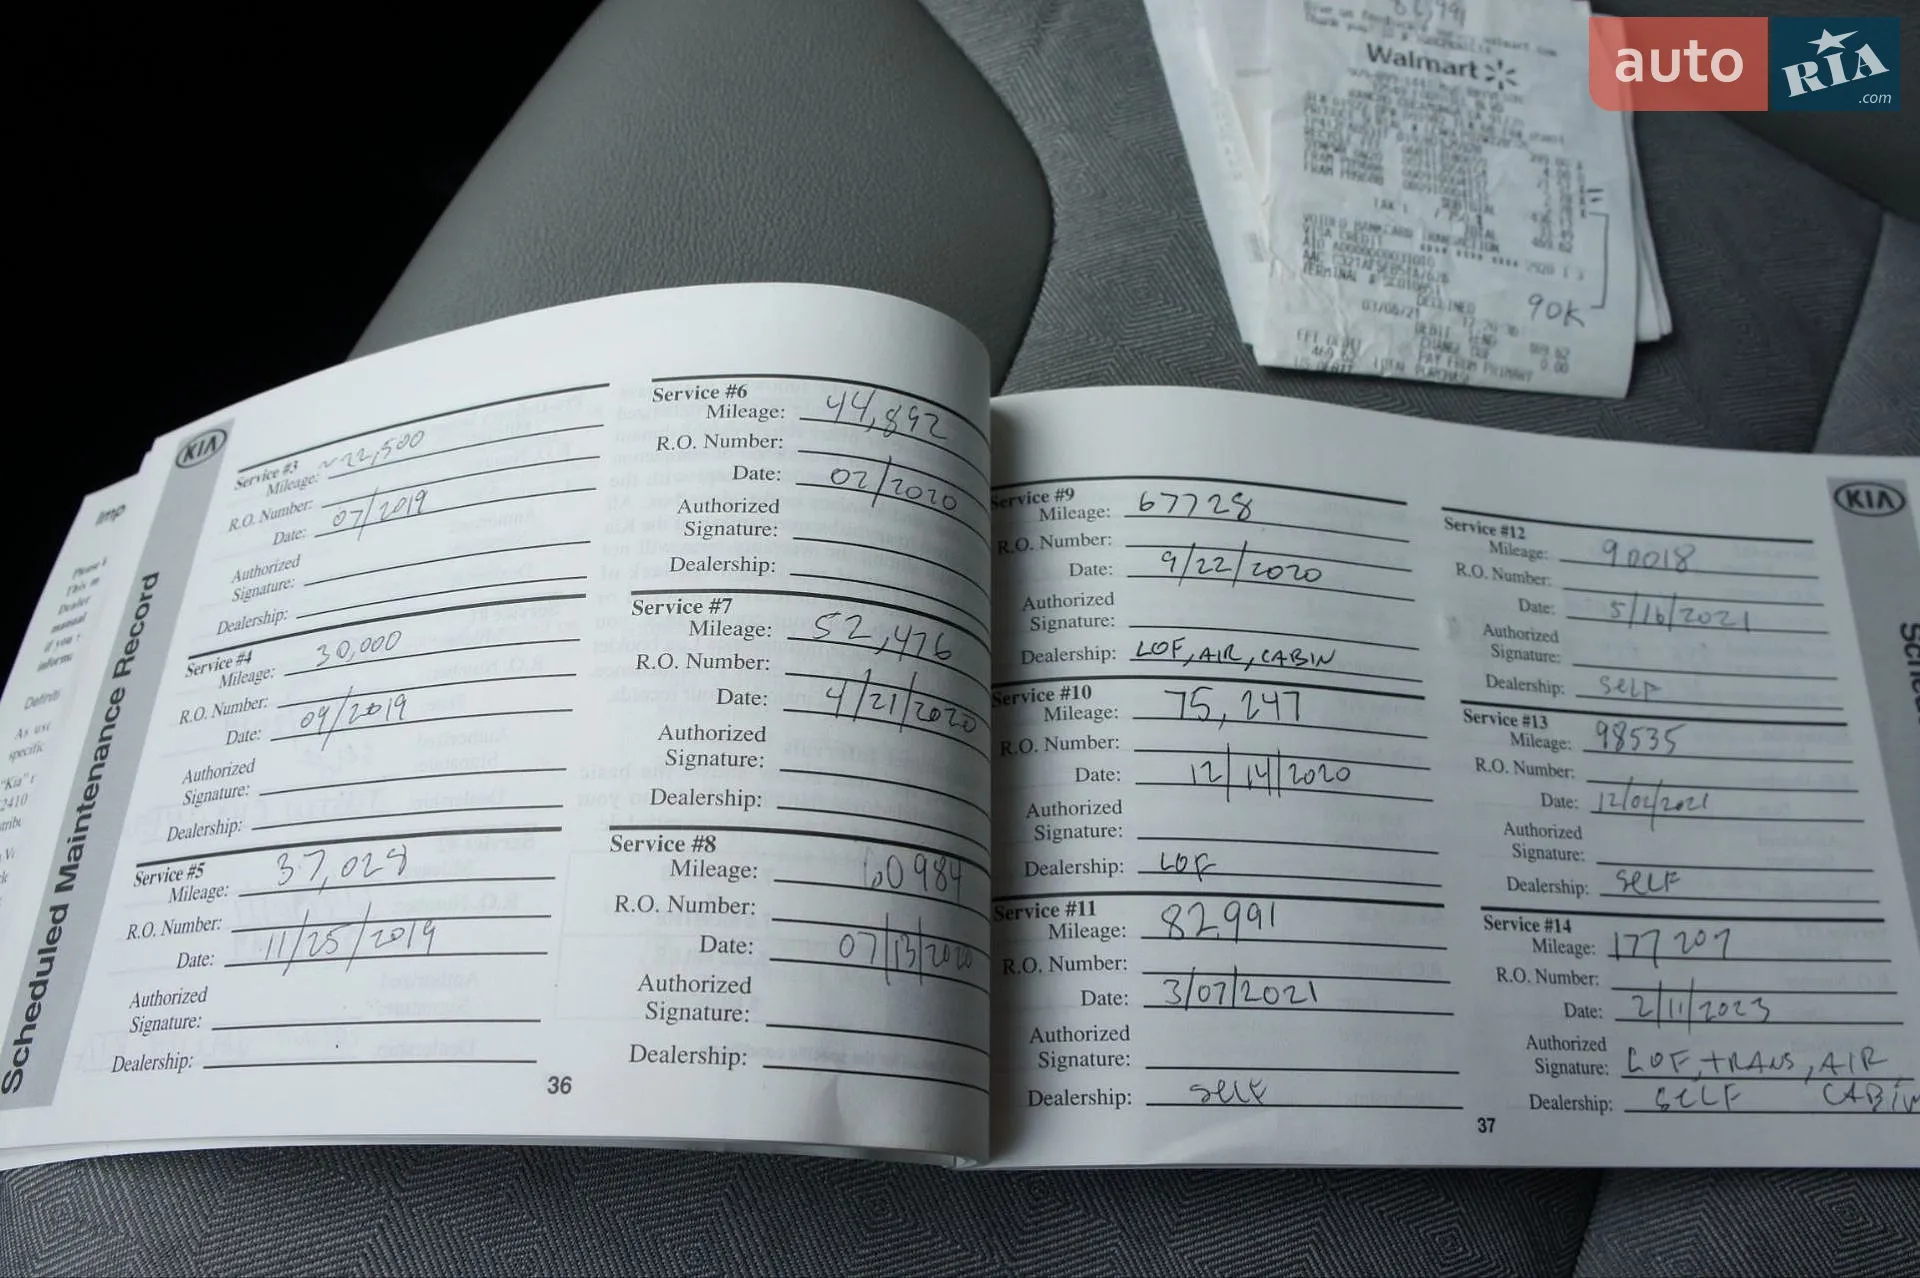 auto
RIA
.com
Walmart
SUBTOTAL
TAX 1
TOTAL
VISA CREDIT
DECLINED
03/06/21
90K
0.00
KIA
Scheduled Maintenance Record
Imp
Service #3
Mileage: ~22,500
R.O. Number:
Date: 07/2019
Authorized
Signature:
Dealership:
Service #4
Mileage: 30,000
R.O. Number:
Date: 09/2019
Authorized
Signature:
Dealership:
Service #5
Mileage: 37,028
R.O. Number:
Date: 11/25/2019
Authorized
Signature:
Dealership:
Service #6
Mileage: 44,892
R.O. Number:
Date: 02/2020
Authorized
Signature:
Dealership:
Service #7
Mileage: 52,476
R.O. Number:
Date: 4/21/2020
Authorized
Signature:
Dealership:
Service #8
Mileage: 60984
R.O. Number:
Date: 07/13/2020
Authorized
Signature:
Dealership:
36
Service #9
Mileage: 67728
R.O. Number:
Date: 9/22/2020
Authorized
Signature:
Dealership: LOF, AIR, CABIN
Service #10
Mileage: 75,247
R.O. Number:
Date: 12/14/2020
Authorized
Signature:
Dealership: LOF
Service #11
Mileage: 82,991
R.O. Number:
Date: 3/07/2021
Authorized
Signature:
Dealership: SELF
KIA
Service #12
Mileage: 90018
R.O. Number:
Date: 5/16/2021
Authorized
Signature:
Dealership: SELF
Service #13
Mileage: 98535
R.O. Number:
Date: 12/02/2021
Authorized
Signature:
Dealership: SELF
Service #14
Mileage: 177207
R.O. Number:
Date: 2/11/2023
Authorized
Signature: LOF, TRANS, AIR,
Dealership: SELF CABIN
37